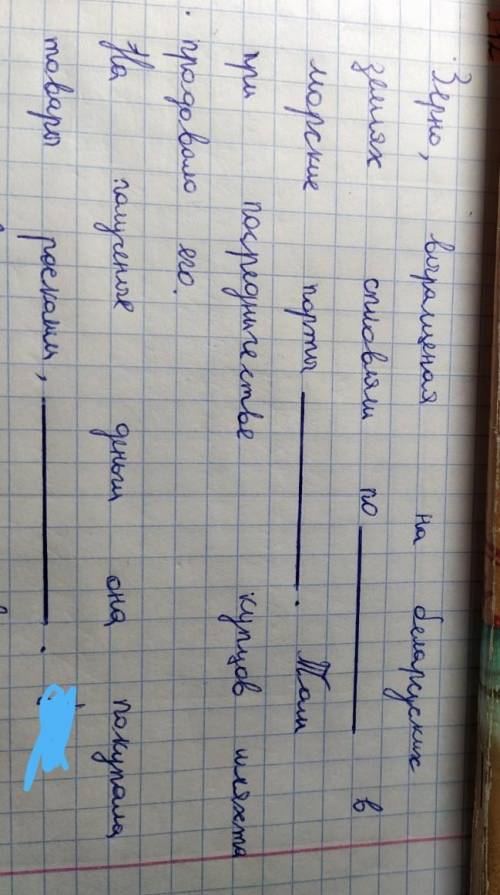 Зерно, выращеная на беларуских
землях сплавляли по в
морские порты . Там
при посредничестве купцов шляхта
продавало его.
На полученые деньги она покупала
товары роскоши, .